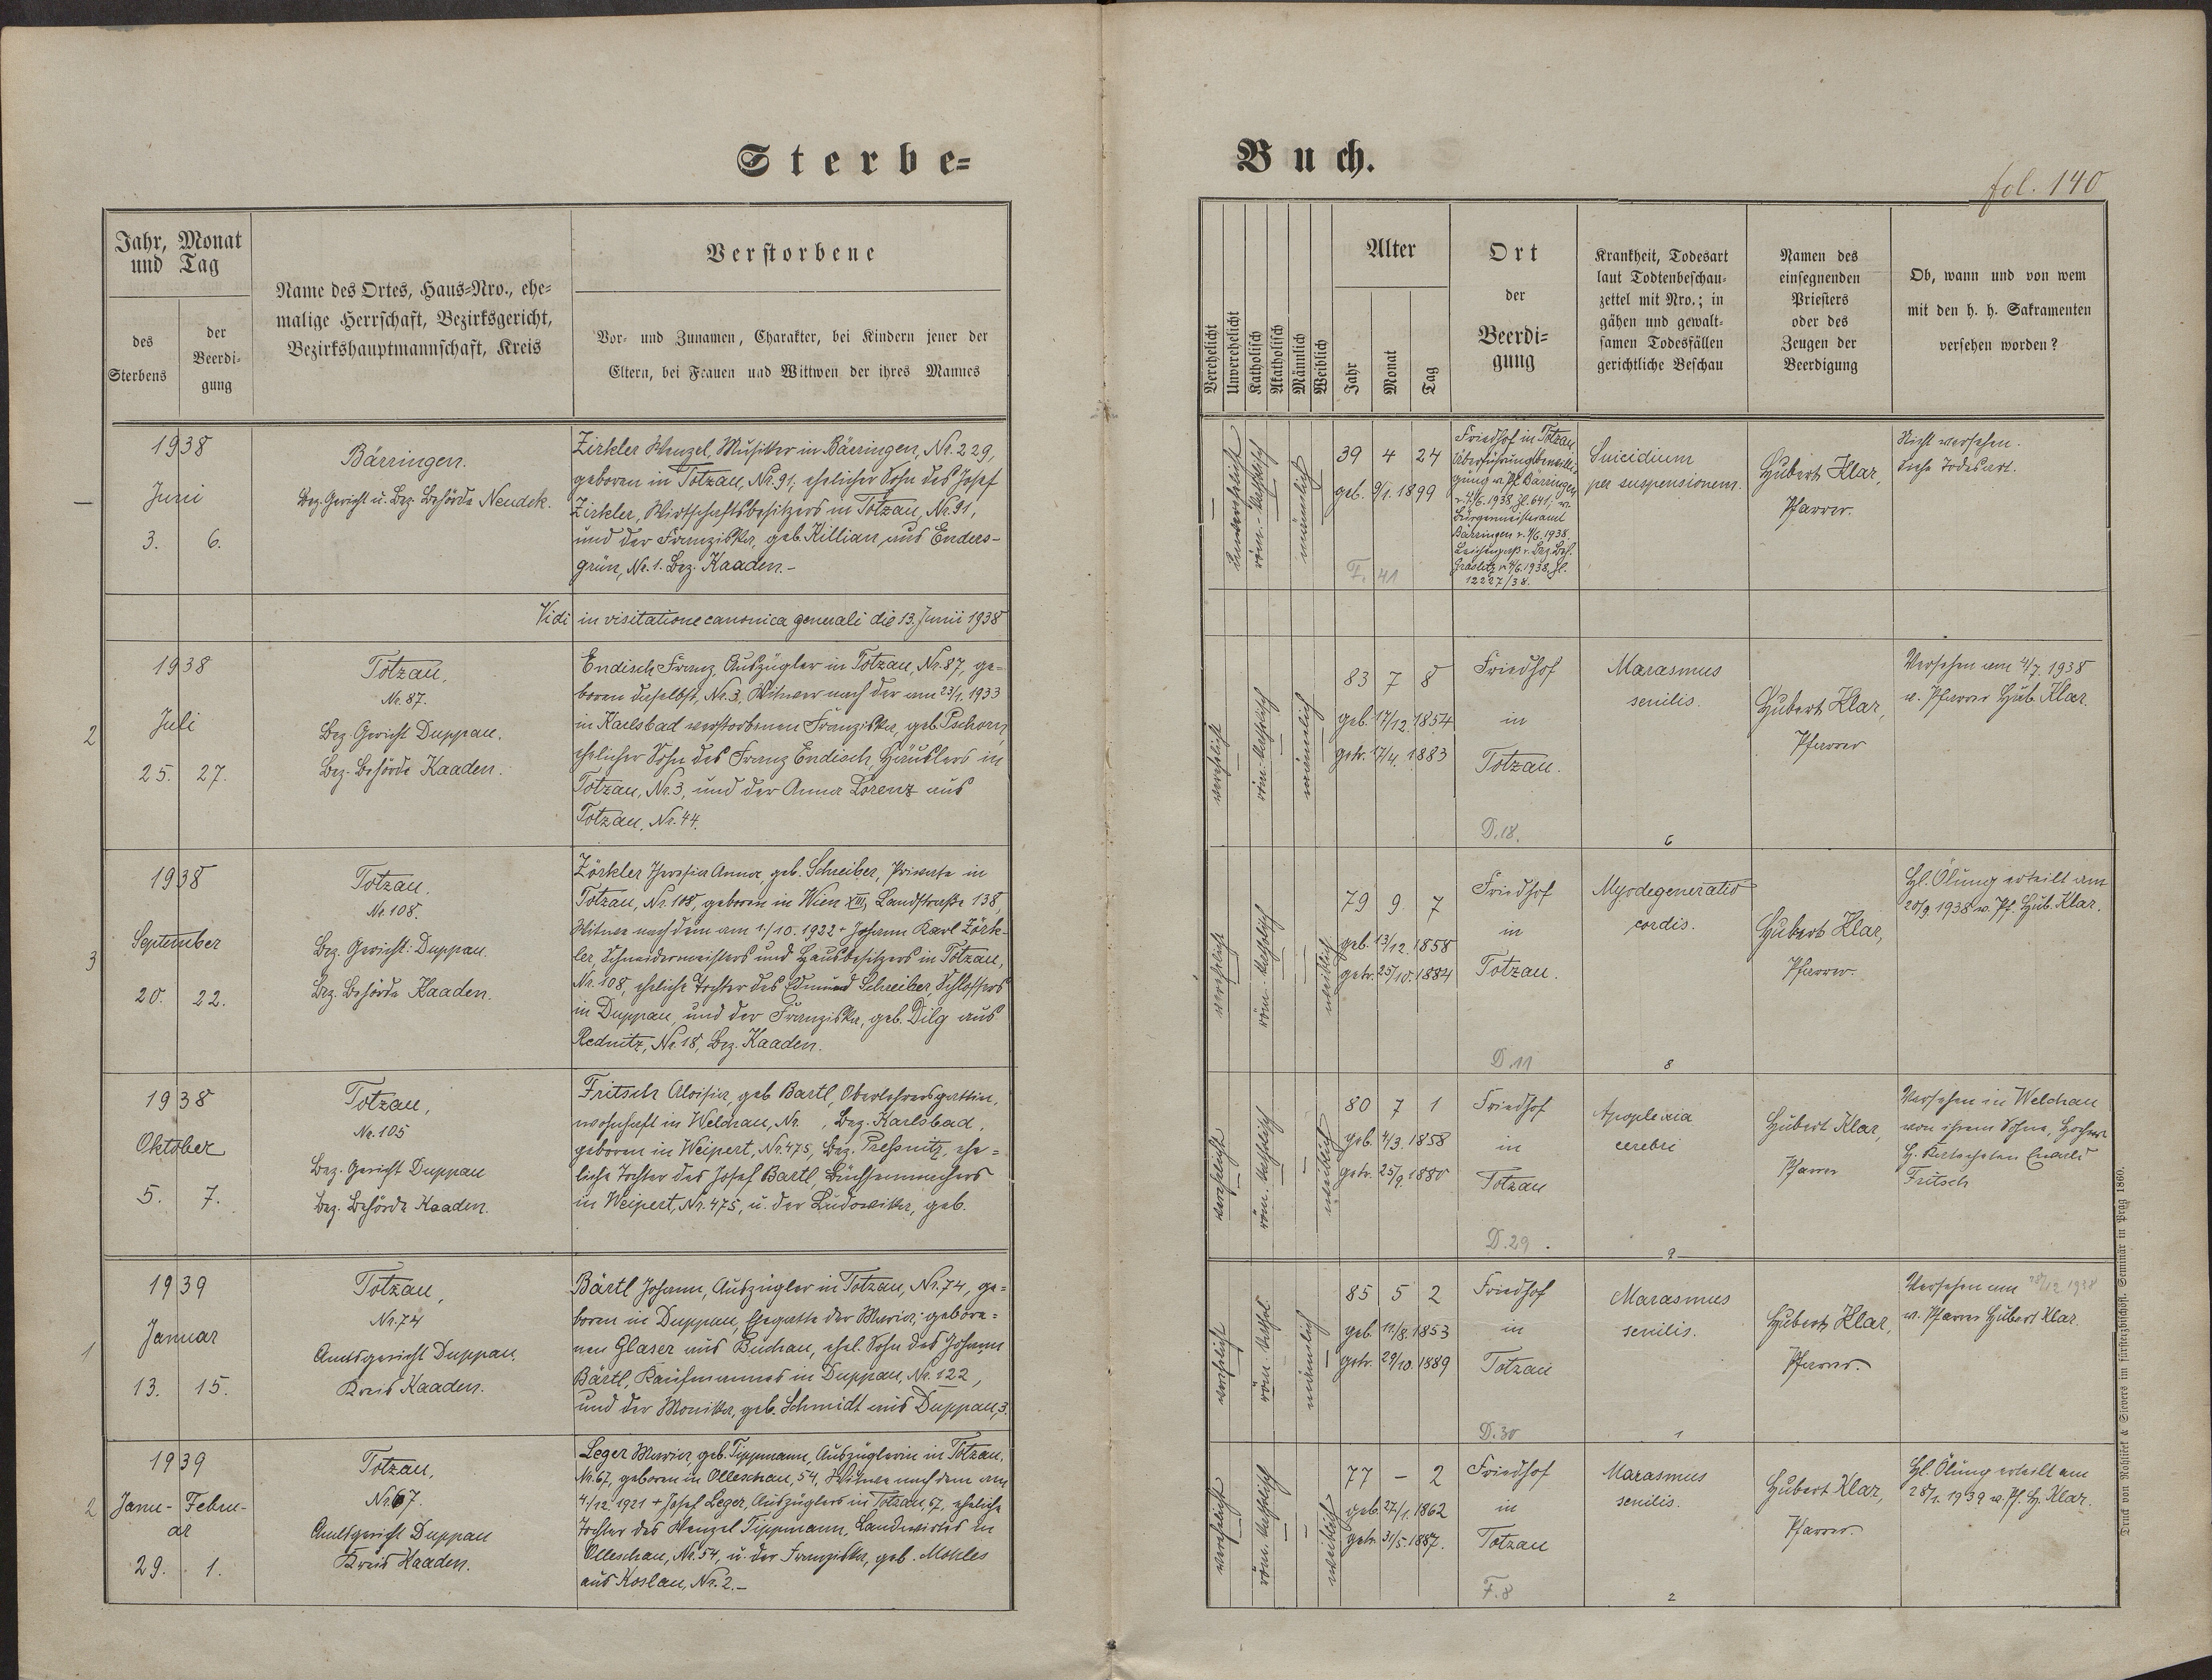 Sterbe-
Buch.
fol. 140
Jahr, Monat
und Tag
des
Sterbens
der
Beerdi-
gung
Name des Ortes, Haus-Nro., ehe-
malige Herrschaft, Bezirksgericht,
Bezirkshauptmannschaft, Kreis
Verstorbene
Vor- und Zunamen, Charakter, bei Kindern jener der
Eltern, bei Frauen und Wittwen der ihres Mannes
Verehelicht
Unverehelicht
Katholisch
Akatholisch
Männlich
Weiblich
Alter
Jahr
Monat
Tag
Ort
der
Beerdi-
gung
Krankheit, Todesart
laut Todtenbeschau-
zettel mit Nro.; in
gähen und gewalt-
samen Todesfällen
gerichtliche Beschau
Namen des
einsegnenden
Priesters
oder des
Zeugen der
Beerdigung
Ob, wann und von wem
mit den h. h. Sakramenten
versehen worden?
—
1938
Juni
3. 6.
Bärringen.
Bez. Gericht u. Bez. Behörde Neudek.
Zirkler Wenzel, Musiker in Bärringen, Nr. 229,
geboren in Totzau, Nr. 91, ehelicher Sohn des Josef
Zirkler, Wirtschaftsbesitzers in Totzau, Nr. 91,
und der Franziska, geb. Killian, aus Enders-
grün, Nr. 1. Bez. Kaaden.-
unverehelicht
röm.-katholisch
männlich
39 4 24
geb. 9/1. 1899
F. 41
Friedhof in Totzau
Überführungsbewilli-
gung v. Pf. Bärringen
v. 4/6. 1938, Zl. 641, v.
Bürgermeisteramt
Bärringen v. 4/6. 1938.
Leichenpaß v. Bez. Beh.
Graslitz v. 4/6. 1938, Zl.
12227/38.
Suicidium
per suspensionem.
Hubert Klar,
Pfarrer.
Nicht versehen.
siehe Todesart.
Vidi in visitatione canonica generali die 13. Junii 1938
2
1938
Juli
25. 27.
Totzau,
Nr. 87.
Bez. Gericht Duppau.
Bez. Behörde Kaaden.
Endisch Franz, Auszügler in Totzau, Nr. 87, ge-
boren daselbst, Nr. 3, Witwer nach der am 23/1. 1933
in Karlsbad verstorbenen Franziska, geb. Pschorn,
ehelicher Sohn des Franz Endisch, Häuslers in
Totzau, Nr. 3, und der Anna Lorenz aus
Totzau, Nr. 44.
verehelicht
röm.-katholisch
männlich
83 7 8
geb. 17/12. 1854
getr. 17/4. 1883
Friedhof
in
Totzau.
D. 18.
Marasmus
senilis.
6
Hubert Klar,
Pfarrer
Versehen am 4/7. 1938
v. Pfarrer Hub. Klar.
3
1938
September
20. 22.
Totzau.
Nr. 108.
Bez. Gericht: Duppau.
Bez. Behörde Kaaden.
Zörkler Theresia Anna, geb. Schreiber, Private in
Totzau, Nr. 108, geboren in Wien XIII, Landstraße 138,
Witwe nach dem am 1./10. 1922 + Johann Karl Zörk-
ler, Schneidermeisters und Hausbesitzers in Totzau,
Nr. 108, eheliche Tochter des Edmund Schreiber, Schlossers
in Duppau und der Franziska, geb. Dilg aus
Rednitz, Nr. 18, Bez. Kaaden.
verehelicht
röm.-katholisch
weiblich
79 9 7
geb. 13/12. 1858
getr. 25/10. 1884
Friedhof
in
Totzau.
D. 11
Myodegeneratio
cordis.
8
Hubert Klar,
Pfarrer.
Hl. Ölung erteilt am
20/9. 1938 v. Pf. Hub. Klar.
1938
Oktober
5. 7.
Totzau,
Nr. 105
Bez. Gericht Duppau
Bez. Behörde Kaaden.
Fritsch Aloisia, geb Bartl, Oberlehrersgattin,
wohnhaft in Welchau, Nr. , Bez. Karlsbad,
geboren in Weipert, Nr. 475, Bez. Preßnitz, ehe-
liche Tochter des Josef Bartl, Büchsenmachers
in Weipert, Nr. 475, u. der Ludowika, geb.
verehelicht
röm.-katholisch
weiblich
80 7 1
geb. 4/3. 1858
getr. 25/9. 1880
Friedhof
in
Totzau
D. 29.
Apoplexia
cerebri
9
Hubert Klar,
Pfarrer
Versehen in Welchau
von ihrem Sohne, Hochw.
H. Katecheten
Fritsch
1
1939
Januar
13. 15.
Totzau,
Nr. 74
Amtsgericht Duppau.
Kreis Kaaden.
Bärtl Johann, Auszügler in Totzau, Nr. 74, ge-
boren in Duppau, Ehegatte der Maria, gebore-
nen Glaser aus Buchau, ehel. Sohn des Johann
Bärtl, Kaufmannes in Duppau, Nr. 122,
und der Monika, geb. Schmidt aus Duppau, 3.
verehelicht
röm. kathol.
männlich
85 5 2
geb. 11/8. 1853
getr. 29/10. 1889
Friedhof
in
Totzau
D. 30
Marasmus
senilis.
1
Hubert Klar,
Pfarrer.
Versehen am 28/12 1938
v. Pfarrer Hubert Klar.
2
1939
Janu- Febru-
ar
29. 1.
Totzau,
Nr. 67.
Amtsgericht Duppau
Kreis Kaaden.
Leger Maria, geb. Tippmann, Auszüglerin in Totzau,
Nr. 67, geboren in Olleschau, 54, Witwe nach dem am
4./12. 1921 + Josef Leger, Auszüglers in Totzau, 67, eheliche
Tochter des Wenzel Tippmann, Landwirtes in
Olleschau, Nr. 54, u. der Franziska, geb. Mohles
aus Koslau, Nr. 2.-
verehelicht
röm. katholisch
weiblich
77 - 2
geb. 27/1. 1862
getr. 31/5. 1887.
Friedhof
in
Totzau
F. 8
Marasmus
senilis.
2
Hubert Klar,
Pfarrer.
Hl. Ölung erteilt am
28/1. 1939 v. Pf. H. Klar.
Druck von Rohliček & Sievers im fürsterzbischöfl. Seminär in Prag 1860.